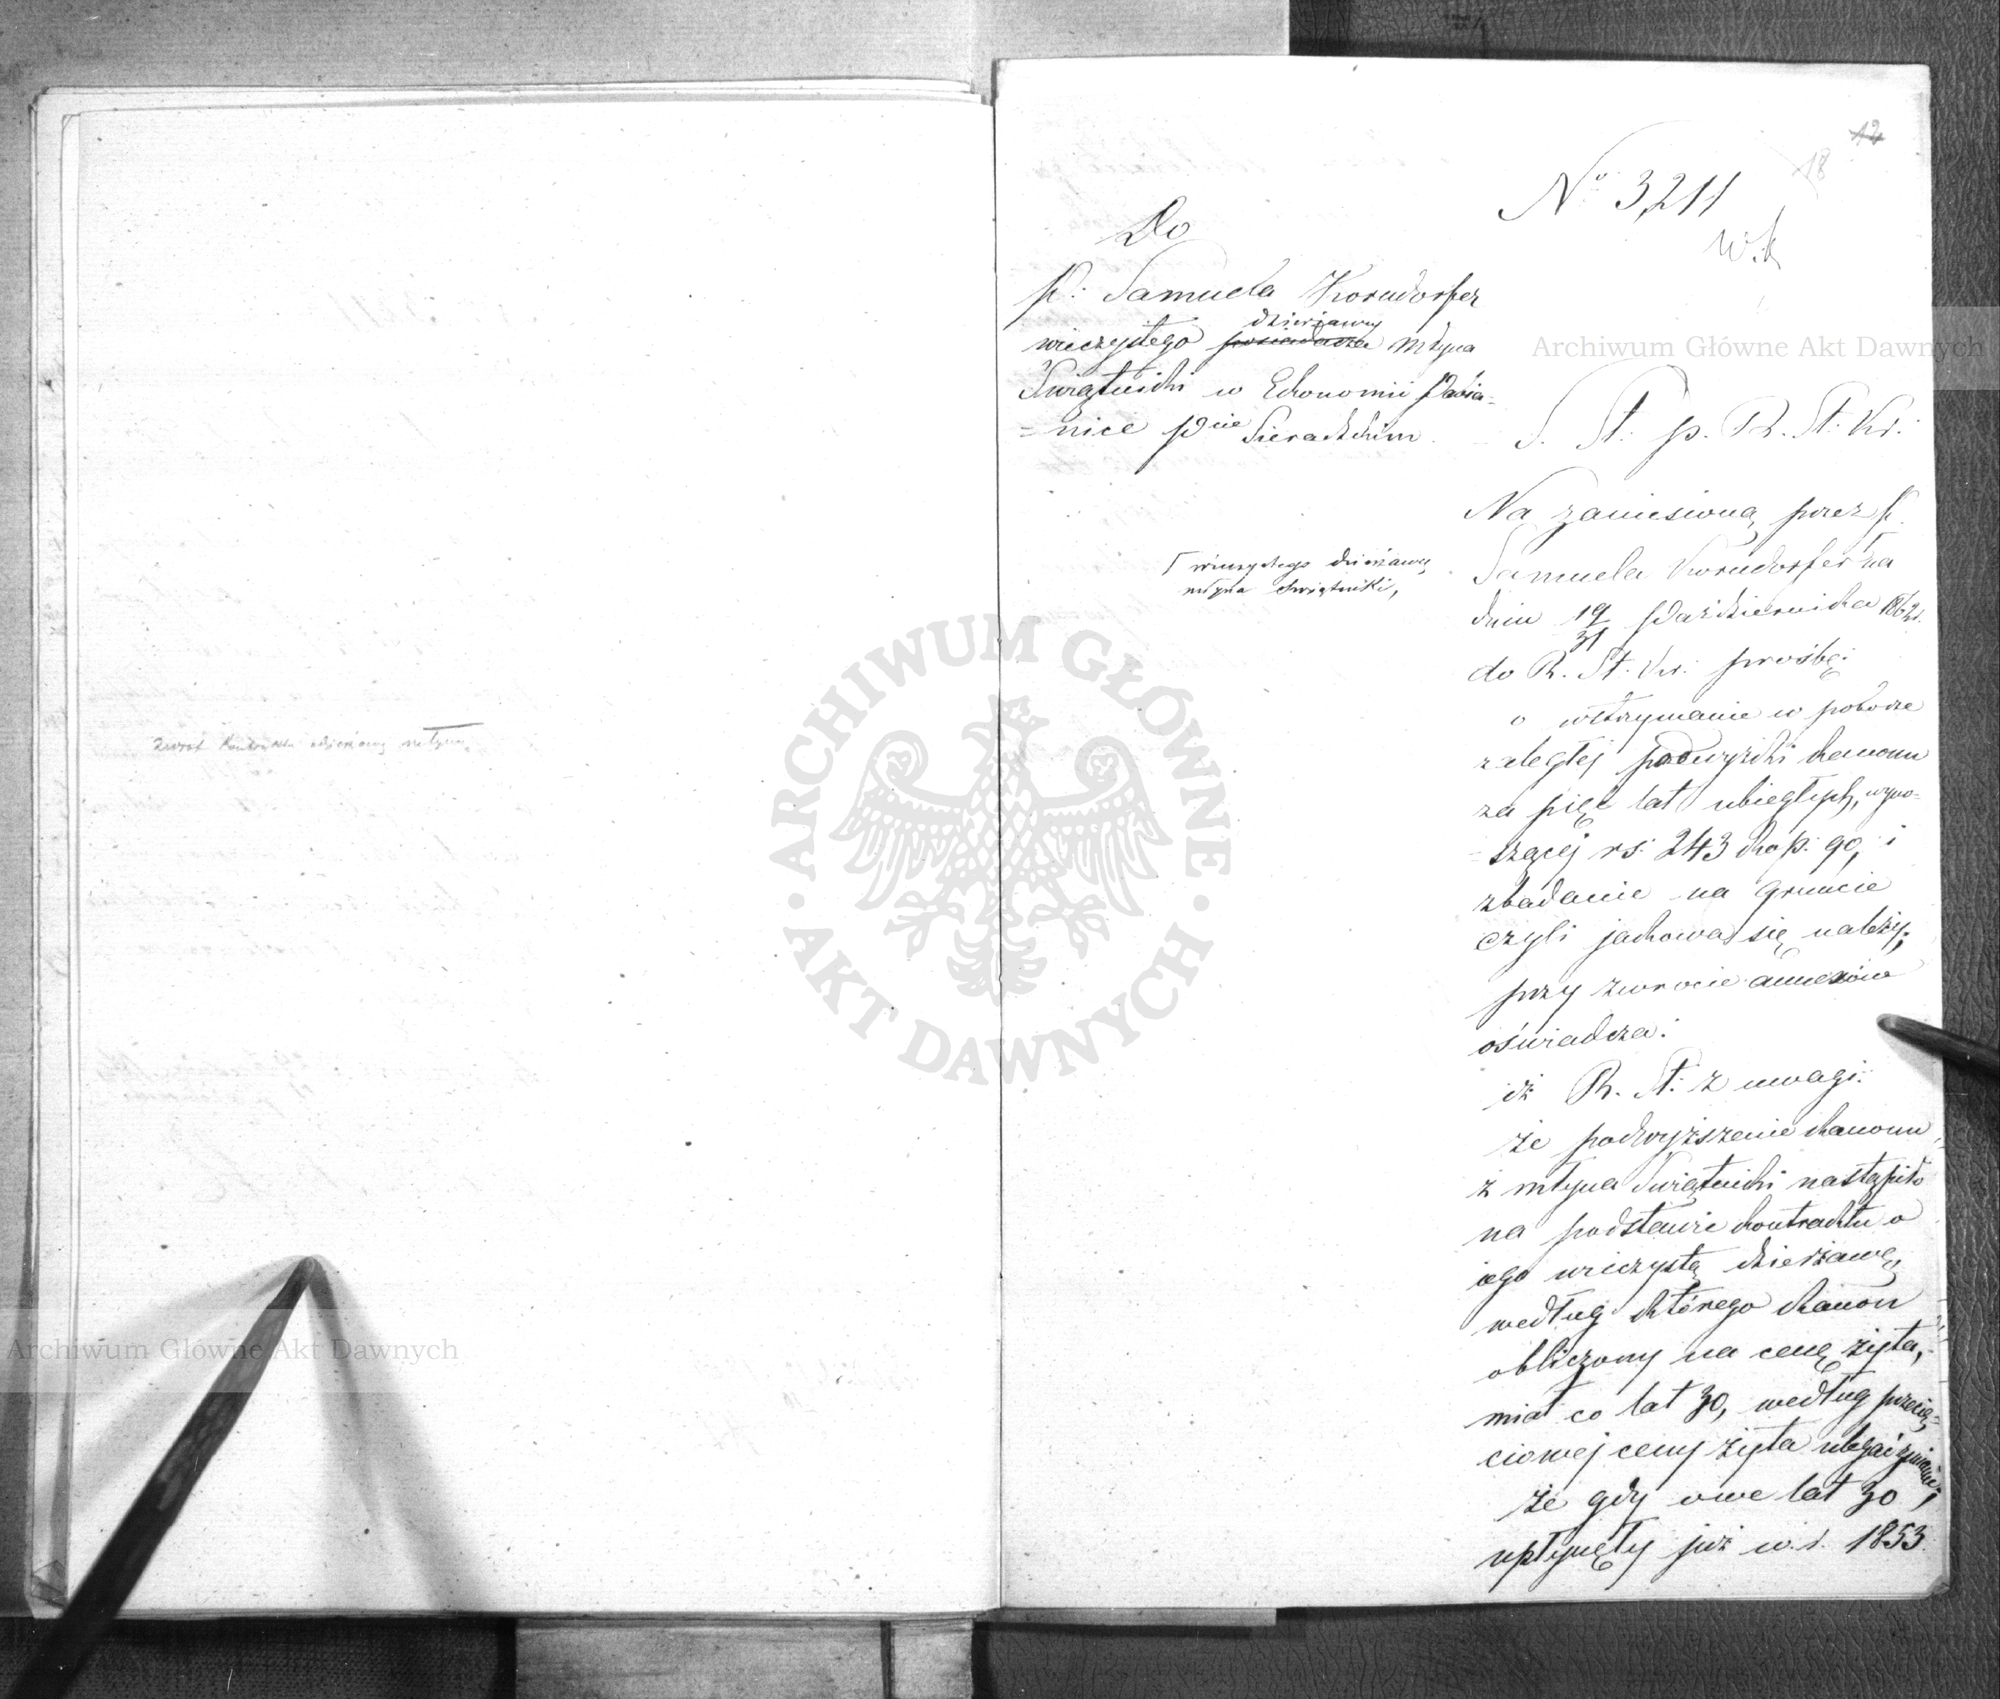 zwrot kontraktu dzierżawy młyna
12
18
No 3,211
w. k
Do
P: Samuela Korndorfer
dzierżawcy
wieczystego posiadacza młyna
Świątniki w Ekonomii Pabia=
=nice Pcie Sieradzkim
S. St: p. R. St. Kr:
Na zaniesioną przez P.
Samuela Korndorfer Γ na
Γ wieczystego dzierżawcy
młyna Świątniki,
dniu 19/31 Października 1862 r.
do R. St. Kr: prośbę:
o wstrzymanie w poborze
zaległej podwyżki kanonu
za pięć lat ubiegłych, wyno=
=szącej rs: 243 kop: 90, i
zbadanie na gruncie
czyli jakowa się należy;
przy zwrocie annexów
oświadcza:
iż R. St: z uwagi:
że podwyższenie kanonu
z młyna Świątniki nastąpiło
na podstawie kontraktu o
iego wieczystą dzierżawę,
według którego kanon
obliczony na cenę żyta,
miał co lat 30, według przecię=
ciowej ceny żyta uledz
że gdy owe lat 30
upłynęły już w r. 1853
Archiwum Główne Akt Dawnych
ARCHIWUM GŁÓWNE AKT DAWNYCH
Archiwum Główne Akt Dawnych